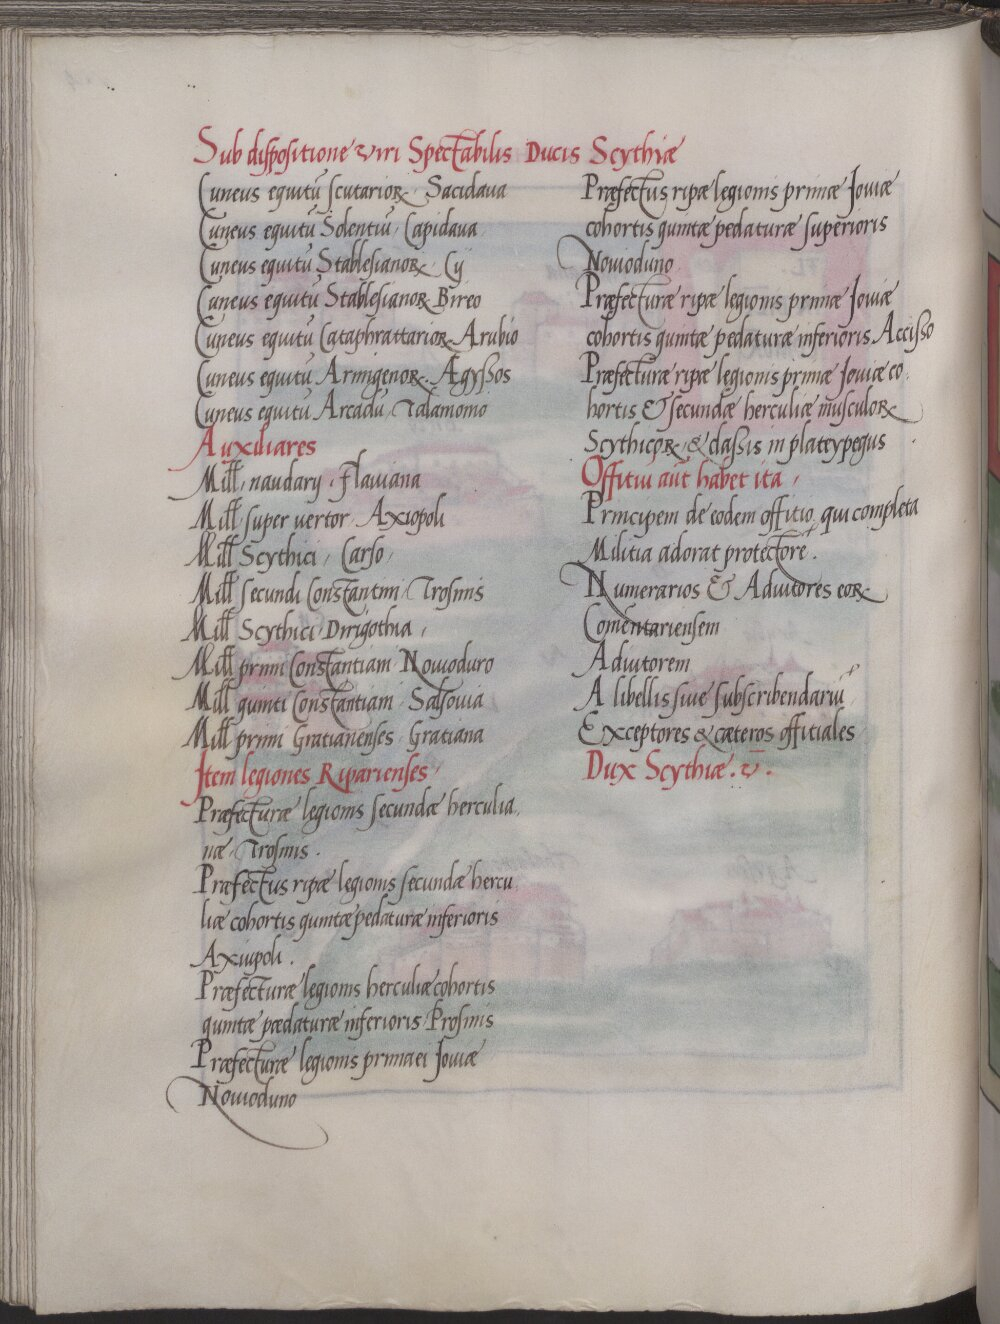 Sub dispositione viri Spectabilis Ducis Scythiæ
Cuneus equitū scutarioꝝ, Sacidava
Cuneus equitū Solentiū, Capidava
Cuneus equitū Stablesianoꝝ, Cij
Cuneus equitū Stablesianoꝝ Bireo
Cuneus equitū Cataphrattarioꝝ, Arubio
Cuneus equitū Armigenoꝝ, Ægyssos
Cuneus equitū Arcadū, Talamonio
Auxiliares
Mill, naudarij, Flaviana
Mill super vertor, Axiopoli
Mill Scythici, Carso,
Mill secundi Constantini, Trosmis
Mill Scythici Dirigothia,
Mill primi Constantiani Novioduro
Mill quinti Constantiani, Salsovia
Mill primi Gratianenses, Gratiana
Item legiones Riparienses,
Præfecturæ legionis secundæ herculia,
næ, Trosmis.
Præfectus ripæ legionis secundæ hercu,
liæ cohortis quintæ pedaturæ inferioris
Axiupoli.
Præfecturæ legionis herculiæ cohortis
quintæ pædaturæ inferioris, Prosmis
Præfecturæ legionis primæi Joviæ
Novioduno
Præfectus ripæ legionis primæ Joviæ
cohortis quintæ pedaturæ superioris
Novioduno,
Præfecturæ ripæ legionis primæ Joviæ
cohortis quintæ pedaturæ inferioris Accisso
Præfecturæ ripæ legionis primæ Joviæ co,
hortis & secundæ herculiæ musculoꝝ
Scythicoꝝ, & classis in plateypegiis
Offitiū aūt habet ita,
Principem de eodem offitio, qui completa
Militia adorat protectore.
Numerarios & Adiutores eoꝝ
Comentariensem
Adiutorem
A libellis sive subscribendariū
Exceptores & cæteros offitiales
Dux Scythiæ. v̄.